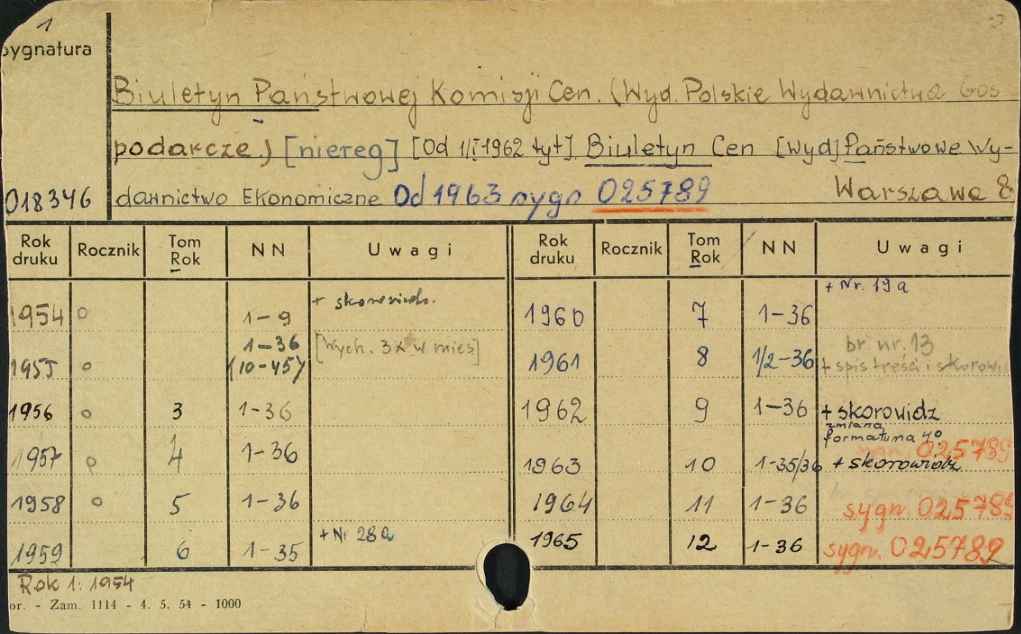 1
sygnatura
Biuletyn Państwowej Komisji Cen. (Wyd. Polskie Wydawnictwa Gos-
podarcze.) [niereg] [Od 1/I 1962 tyt]. Biuletyn Cen [Wyd] Państwowe Wy-
018346 dawnictwo Ekonomiczne Od 1963 sygn 025789 Warszawa 8
Rok druku Rocznik Tom Rok NN Uwagi Rok druku Rocznik Tom Rok NN Uwagi
1954 o 1-9 + skorowidz. 1960 7 1-36 + Nr. 19a
1955 o 1-36 (10-45) [Wych. 3x w mies] 1961 8 1/2-36 br. nr. 13 + spis treści i skorowi
1956 o 3 1-36 1962 9 1-36 + skorowidz
1957 o 4 1-36 1963 10 1-35/36 zmiana formatu na 4° + skorowidz 025789
1958 o 5 1-36 1964 11 1-36 sygn. 025789
1959 6 1-35 + Nr 28a 1965 12 1-36 sygn. 025789
Rok 1: 1954
or. - Zam. 1114 - 4. 5. 54 - 1000